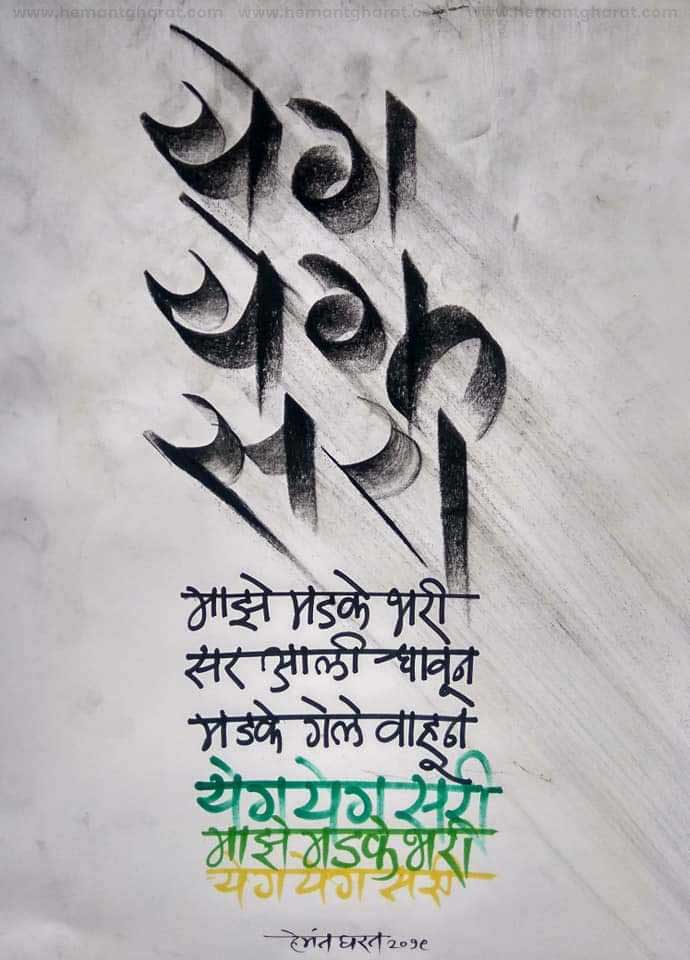 www.hemantgharat.com www.hemantgharat.com www.hemantgharat.com
येग
येग
सरी
माझे मडके भरी
सर आली धावून
मडके गेले वाहून
येग येग सरी
माझे मडके भरी
येग येग सरी
हेमंत घरत २०१९